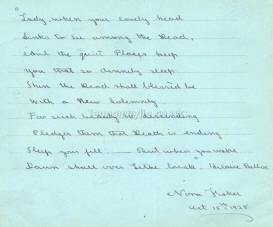 "Lady, when your lovely head
Sinks to lie among the Dead,
And the quiet Places keep
You that so divinely sleep
Then the Dead shall blessèd be
With a New Solemnity
For such beauty so descending
Pledges them that Death is ending
Sleep your fill — But when you wake
Dawn shall over Lethe break". Hilaire Belloc
Nora Fisher
Oct 10th 1928